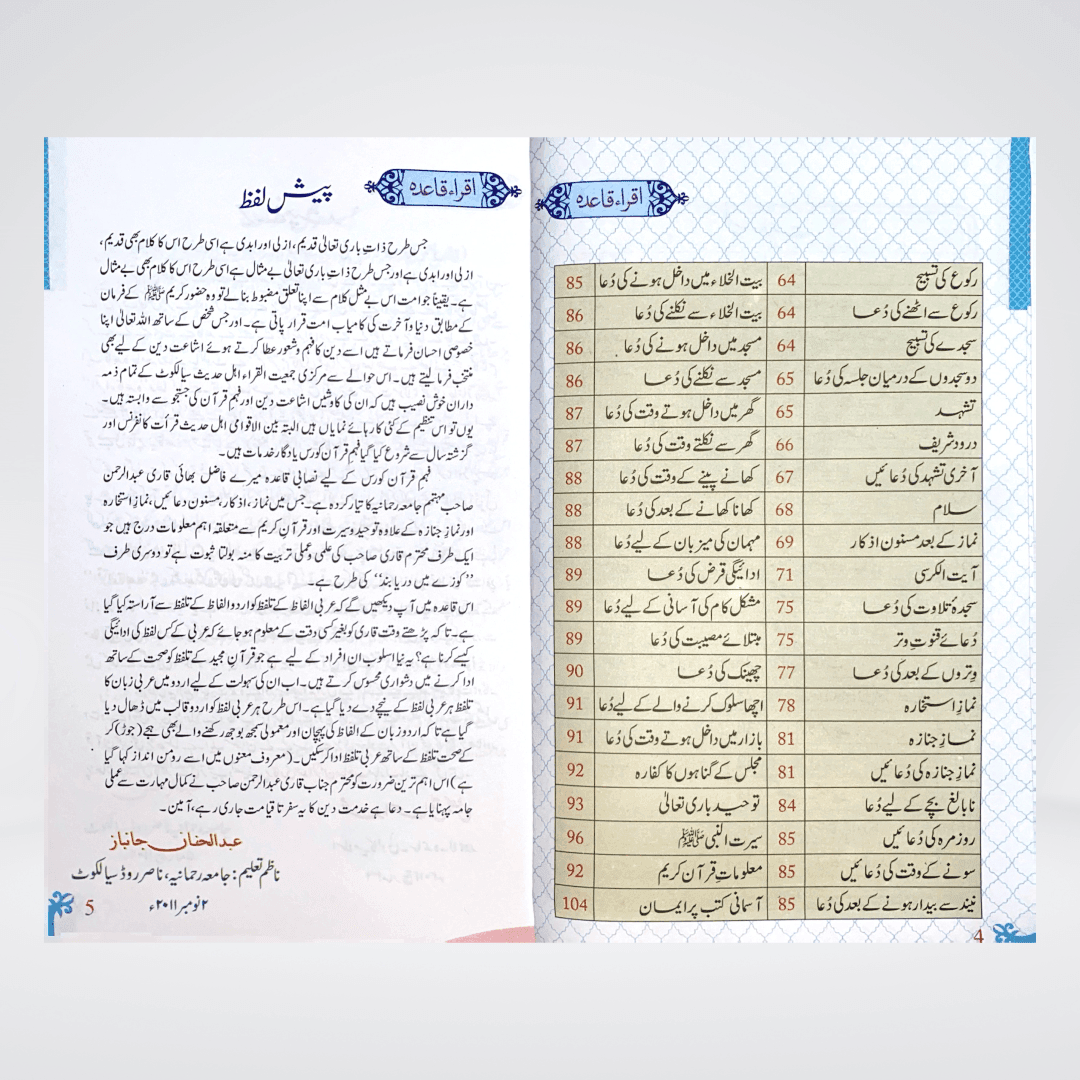 اقراء قاعدہ
رکوع کی تسبیح 64 بیت الخلاء میں داخل ہونے کی دُعا 85
رکوع سے اٹھنے کی دُعا 64 بیت الخلاء سے نکلنے کی دُعا 86
سجدے کی تسبیح 64 مسجد میں داخل ہونے کی دُعا 86
دو سجدوں کے درمیان جلسہ کی دُعا 65 مسجد سے نکلنے کی دُعا 86
تشہد 65 گھر میں داخل ہوتے وقت کی دُعا 87
درود شریف 66 گھر سے نکلتے وقت کی دُعا 87
آخری تشہد کی دُعائیں 67 کھانے پینے کے وقت کی دُعا 88
سلام 68 کھانا کھانے کے بعد کی دُعا 88
نماز کے بعد مسنون اذکار 69 مہمان کی میزبان کے لیے دُعا 88
آیت الکرسی 71 ادائیگی قرض کی دُعا 89
سجدۂ تلاوت کی دُعا 75 مشکل کام کی آسانی کے لیے دُعا 89
دُعائے قنوتِ وتر 75 مبتلائے مصیبت کی دُعا 89
وِتروں کے بعد کی دُعا 77 چھینک کی دُعا 90
نمازِ استخارہ 78 اچھا سلوک کرنے والے کے لیے دُعا 91
نمازِ جنازہ 81 بازار میں داخل ہوتے وقت کی دُعا 91
نمازِ جنازہ کی دُعائیں 81 مجلس کے گناہوں کا کفارہ 92
نابالغ بچے کے لیے دُعا 84 توحید باری تعالیٰ 93
روزمرہ کی دُعائیں 85 سیرت النبی ﷺ 96
سونے کے وقت کی دُعائیں 85 معلوماتِ قرآن کریم 92
نیند سے بیدار ہونے کے بعد کی دُعا 85 آسمانی کتب پر ایمان 104
4
اقراء قاعدہ
پیش لفظ
جس طرح ذاتِ باری تعالیٰ قدیم، ازلی اور ابدی ہے اسی طرح اس کا کلام بھی قدیم،
ازلی اور ابدی ہے اور جس طرح ذاتِ باری تعالیٰ بے مثال ہے اسی طرح اس کا کلام بھی بے مثال
ہے۔ یقیناً جو امت اس بے مثل کلام سے اپنا تعلق مضبوط بنالے تو وہ حضور کریم ﷺ کے فرمان
کے مطابق دنیا و آخرت کی کامیاب امت قرار پاتی ہے۔ اور جس شخص کے ساتھ اللہ تعالیٰ اپنا
خصوصی احسان فرماتے ہیں اسے دین کا فہم و شعور عطا کرتے ہوئے اشاعت دین کے لیے بھی
منتخب فرما لیتے ہیں۔ اس حوالے سے مرکزی جمعیت القراء اہل حدیث سیالکوٹ کے تمام ذمہ
داران خوش نصیب ہیں کہ ان کی کاوشیں اشاعت دین اور فہمِ قرآن کی جستجو سے وابستہ ہیں۔
یوں تو اس تنظیم کے کئی کارہائے نمایاں ہیں البتہ بین الاقوامی اہل حدیث قرأت کانفرنس اور
گزشتہ سال سے شروع کیا گیا فہمِ قرآن کورس یادگار خدمات ہیں۔
فہم قرآن کورس کے لیے نصابی قاعدہ میرے فاضل بھائی قاری عبدالرحمن
صاحب مہتمم جامعہ رحمانیہ کا تیار کردہ ہے۔ جس میں نماز، اذکار، مسنون دعائیں، نمازِ استخارہ
اور نمازِ جنازہ کے علاوہ توحید و سیرت اور قرآن کریم سے متعلقہ اہم معلومات درج ہیں جو
ایک طرف محترم قاری صاحب کی علمی و عملی تربیت کا منہ بولتا ثبوت ہے تو دوسری طرف
’’کوزے میں دریا بند‘‘ کی طرح ہے۔
اس قاعدہ میں آپ دیکھیں گے کہ عربی الفاظ کے تلفظ کو اردو الفاظ کے تلفظ سے آراستہ کیا گیا
ہے۔ تاکہ پڑھتے وقت قاری کو بغیر کسی دقت کے معلوم ہو جائے کہ عربی کے کس لفظ کی ادائیگی
کیسے کرنا ہے؟ یہ نیا اسلوب ان افراد کے لیے ہے جو قرآنِ مجید کے تلفظ کو صحت کے ساتھ
ادا کرنے میں دشواری محسوس کرتے ہیں۔ اب ان کی سہولت کے لیے اردو میں عربی زبان کا
تلفظ ہر عربی لفظ کے نیچے دے دیا گیا ہے۔ اس طرح ہر عربی لفظ کو اردو قالب میں ڈھال دیا
گیا ہے تاکہ اردو زبان کے الفاظ کی پہچان اور معمولی سمجھ بوجھ رکھنے والے بھی ہجے (جوڑ) کر
کے صحت تلفظ کے ساتھ عربی تلفظ ادا کر سکیں۔ (معروف معنوں میں اسے رومن انداز کہا گیا
ہے) اس اہم ترین ضرورت کو محترم جناب قاری عبدالرحمن صاحب نے کمال مہارت سے عملی
جامہ پہنایا ہے۔ دعا ہے خدمت دین کا یہ سفر تا قیامت جاری رہے، آمین۔
عبدالحنان جانباز
ناظم تعلیم: جامعہ رحمانیہ، ناصر روڈ سیالکوٹ
۲ نومبر ۲۰۱۱ء
5